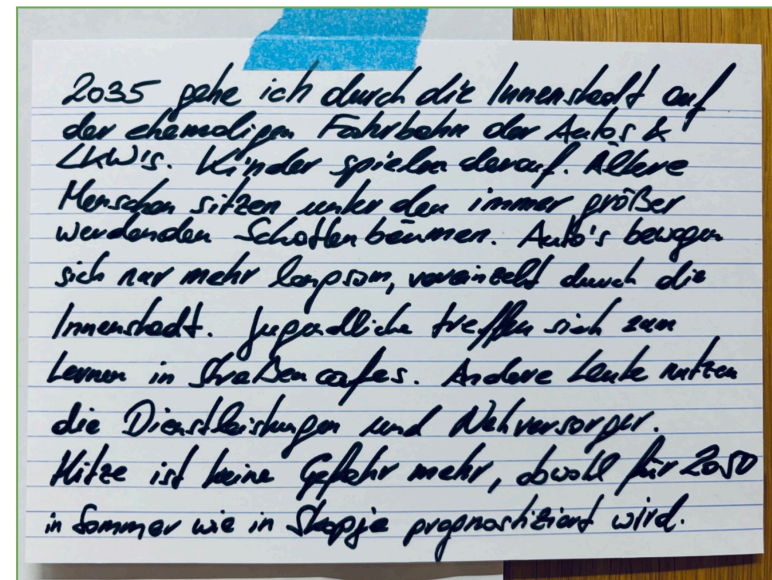 2035 gehe ich durch die Innenstadt auf
der ehemaligen Fahrbahn der Autos &
LKW's. Kinder spielen darauf. Ältere
Menschen sitzen unter den immer größer
werdenden Schattenbäumen. Auto's bewegen
sich nur mehr langsam, vereinzelt durch die
Innenstadt. Jugendliche treffen sich zum
Lernen in Straßencafes. Andere Leute nutzen
die Dienstleistungen und Nahversorger.
Hitze ist keine Gefahr mehr, obwohl für 2050
in Sommer wie in Skopje prognostiziert wird.